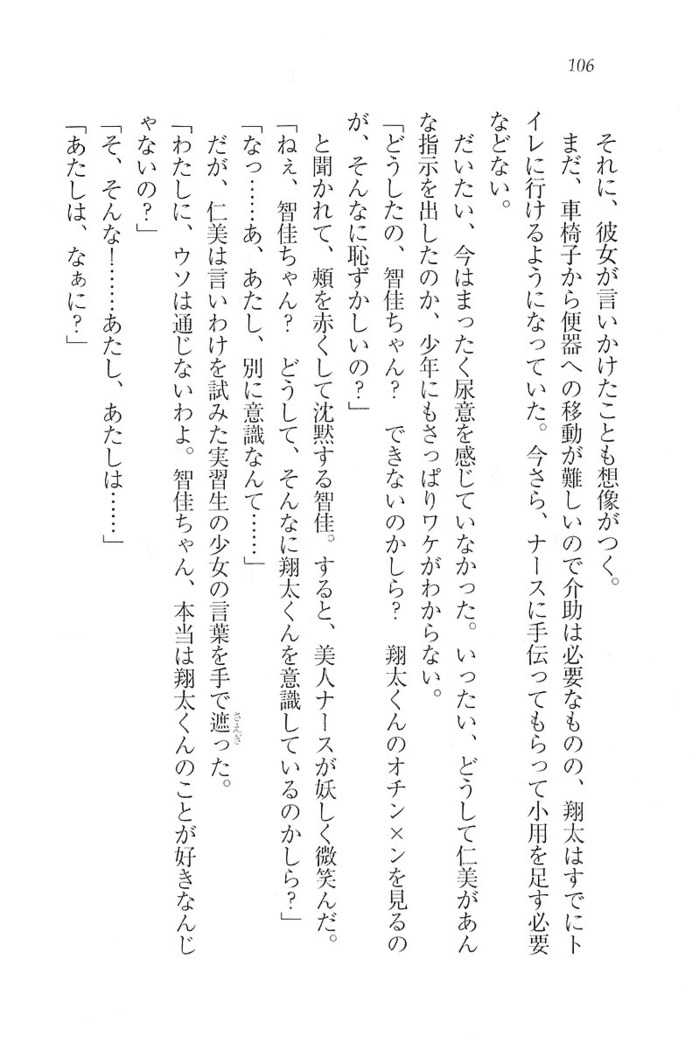 106
それに、彼女が言いかけたことも想像がつく。
まだ、車椅子から便器への移動が難しいので介助は必要なものの、翔太はすでにト
イレに行けるようになっていた。今さら、ナースに手伝ってもらって小用を足す必要
などない。
だいたい、今はまったく尿意を感じていなかった。いったい、どうして仁美があん
な指示を出したのか、少年にもさっぱりワケがわからない。
「どうしたの、智佳ちゃん？　できないのかしら？　翔太くんのオチン×ンを見るの
が、そんなに恥ずかしいの？」
と聞かれて、頰を赤くして沈黙する智佳。すると、美人ナースが妖しく微笑んだ。
「ねぇ、智佳ちゃん？　どうして、そんなに翔太くんを意識しているのかしら？」
「なっ……あ、あたし、別に意識なんて……」
だが、仁美は言いわけを試みた実習生の少女の言葉を手で遮さえぎった。
「わたしに、ウソは通じないわよ。智佳ちゃん、本当は翔太くんのことが好きなんじ
ゃないの？」
「そ、そんな！……あたし、あたしは……」
「あたしは、なぁに？」